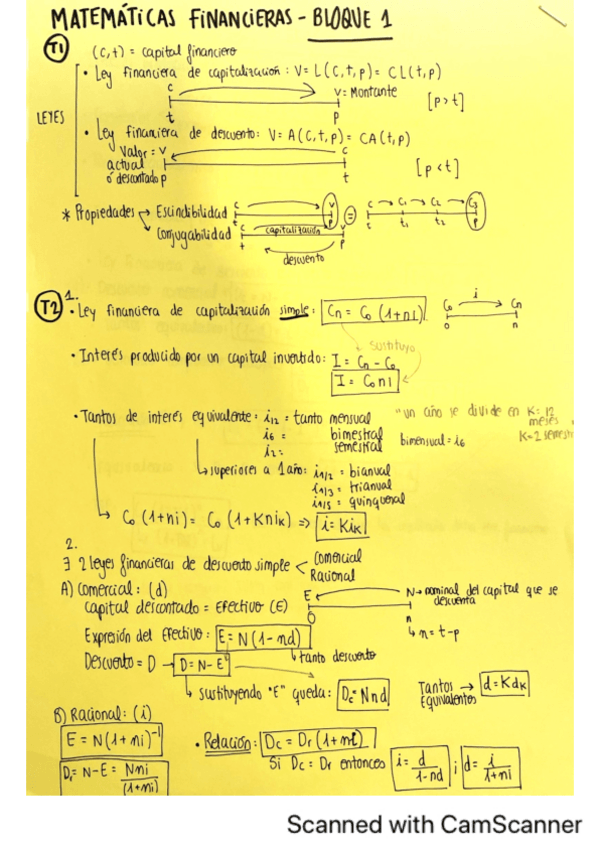 MATEMÁTICAS FINANCIERAS - BLOQUE 1
T1 (C,t) = capital financiero
• Ley financiera de capitalización: V = L(C,t,p) = CL(t,p)
C V = Montante
t p [p>t]
LEYES
• Ley financiera de descuento: V = A(C,t,p) = CA(t,p)
Valor = V C
actual
ó descontado p t [p<t]
* Propiedades → Escindibilidad C V = C C₁ C₂ C₃
t p t t₁ t₂ p
Conjugabilidad C capitalización V
t p
descuento
T2 1.
• Ley financiera de capitalización simple: Cn = C₀ (1+ni) C₀ i Cn
0 n
sustituyo
• Interés producido por un capital invertido: I = Cn - C₀
I = C₀ni
• Tantos de interés equivalente = i₁₂ = tanto mensual "un año se divide en K=12 meses
i₆ = bimestral bimensual = i₆
i₂ = semestral K=2 semestr
superiores a 1 año: i₁/₂ = bianual
i₁/₃ = trianual
i₁/₅ = quinquenal
C₀ (1+ni) = C₀ (1+Kniₖ) => i = Kiₖ
2.
∃ 2 leyes financieras de descuento simple < Comercial
Racional
A) Comercial: (d)
E N → nominal del capital que se descuenta
capital descontado = Efectivo (E)
0 n
n = t-p
Expresión del efectivo: E = N(1-nd)
tanto descuento
Descuento = D → D = N-E
sustituyendo "E" queda: Dc = Nnd
Tantos Equivalentes → d = Kdₖ
B) Racional: (i)
E = N(1+ni)⁻¹
• Relación: Dc = Dr(1+ni)
Dr = N-E = Nni/(1+ni)
Si Dc = Dr entonces i = d/1-nd ; d = i/1+ni
Scanned with CamScanner